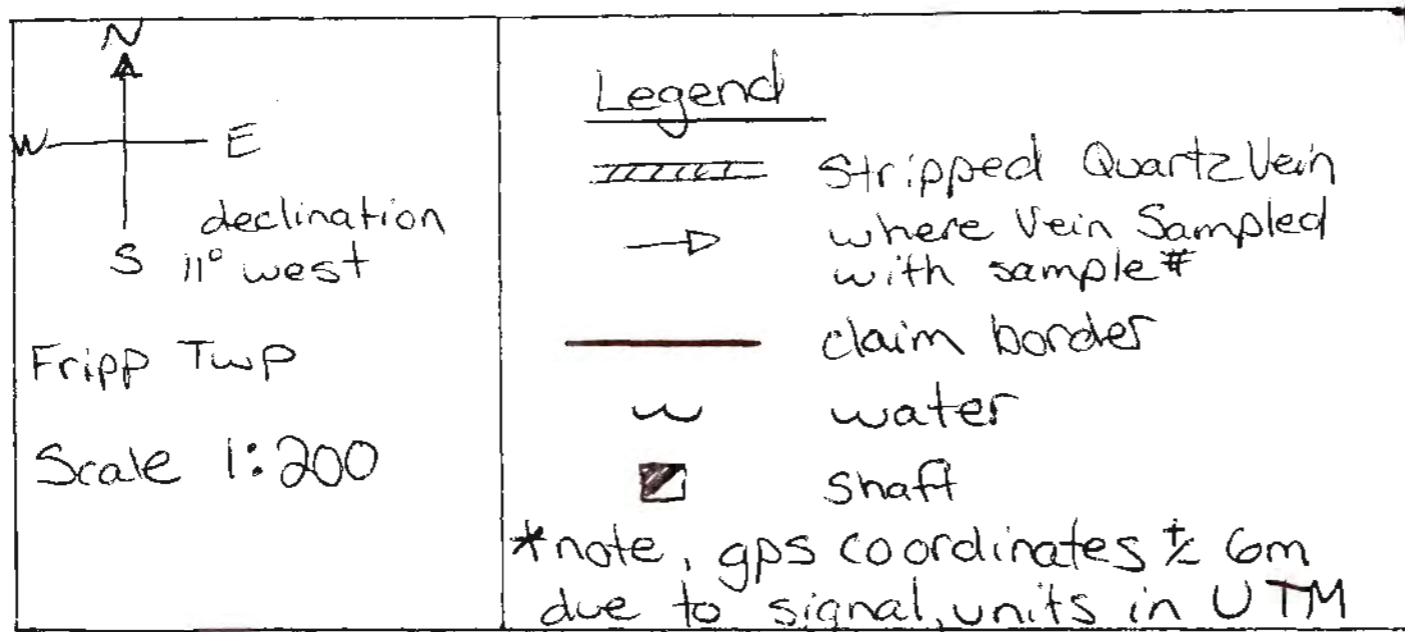 N
W E
S
declination
11° west
Fripp Twp
Scale 1:200
Legend
Stripped Quartz Vein
where Vein Sampled
with sample#
claim border
water
shaft
*note, gps coordinates ± 6m
due to signal, units in UTM